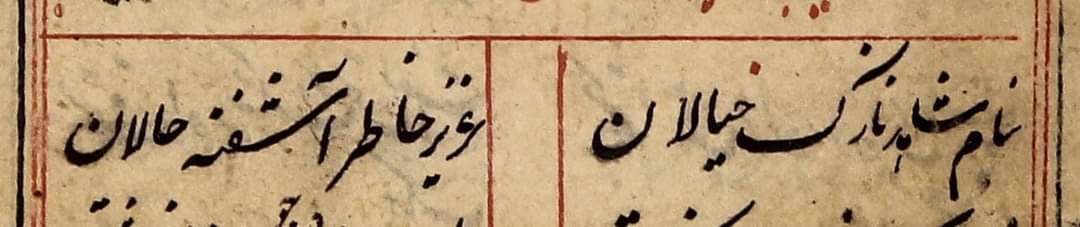 بنام شاهد نازک خیالان
عزیز خاطر آشفته حالان